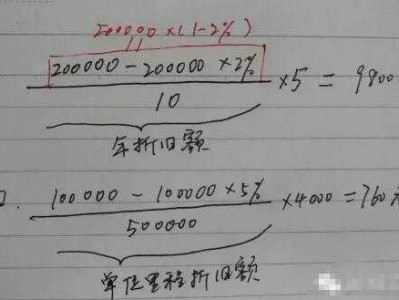 200000×(1-2%)
200000-200000×2%
10
×5=9800
年折旧额
100000-100000×5%
500000
×4000=760
单位里程折旧额